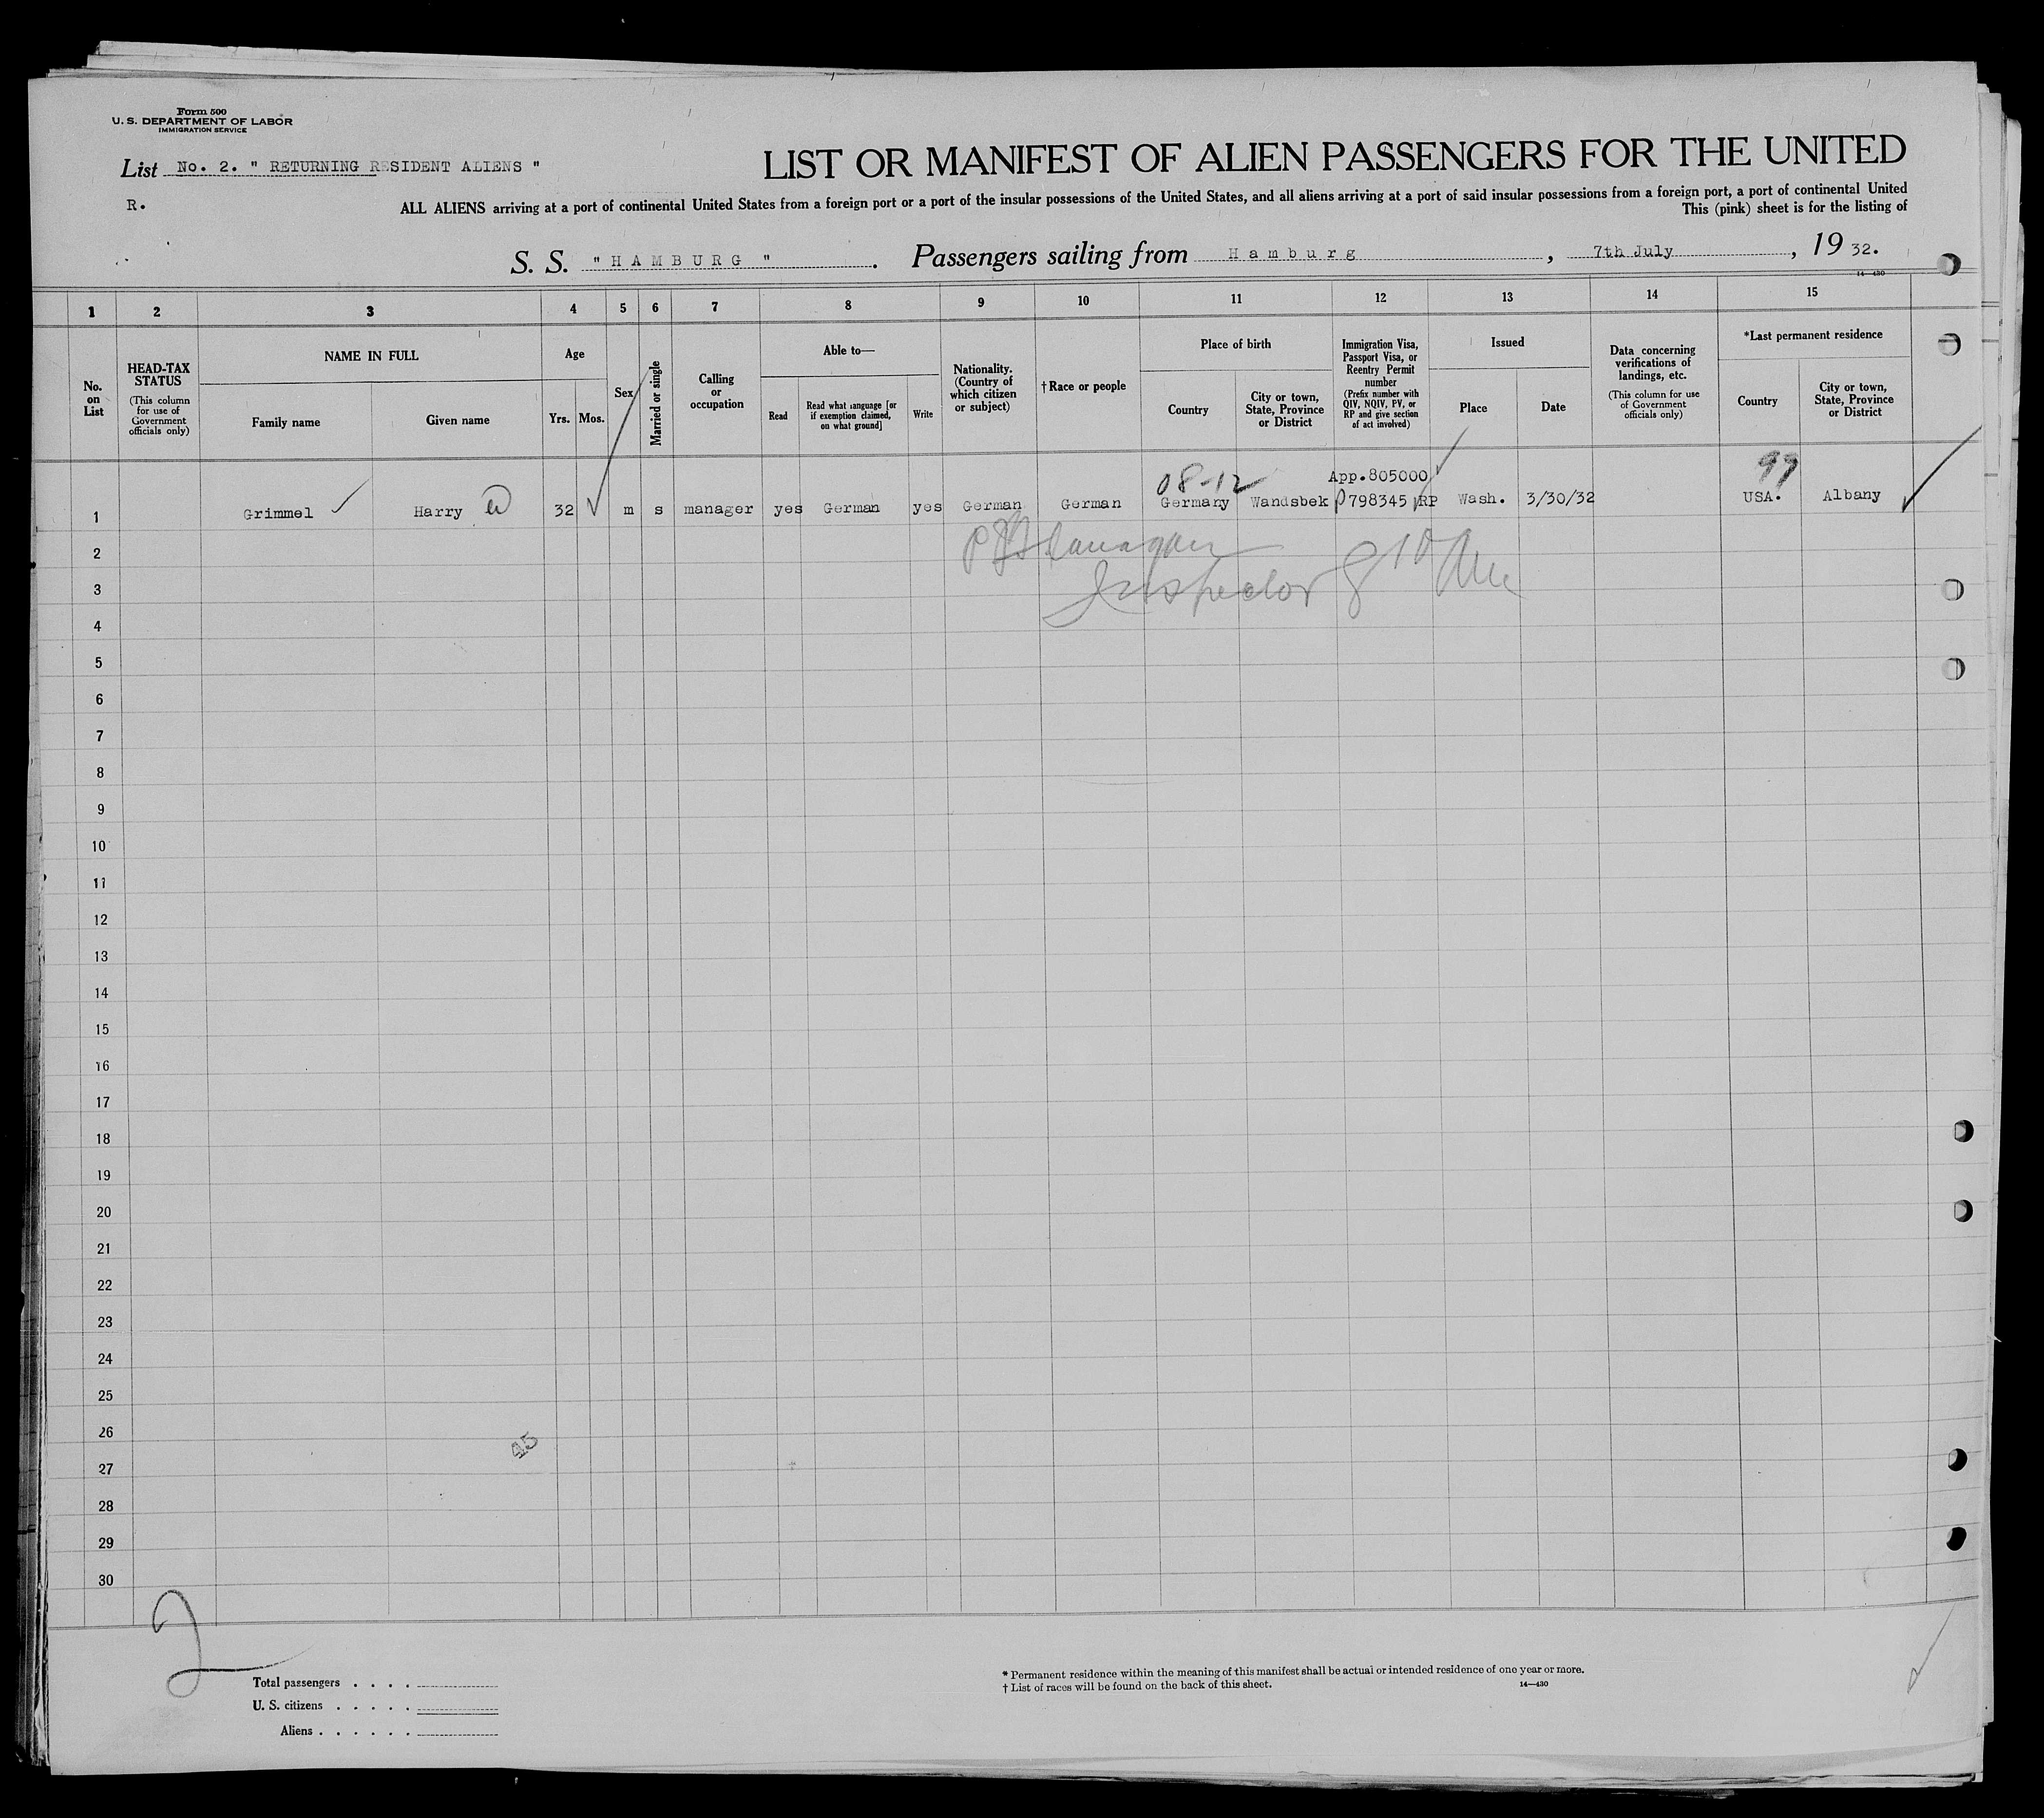 Form 500
U. S. DEPARTMENT OF LABOR
IMMIGRATION SERVICE
List No. 2. " RETURNING RESIDENT ALIENS "
R.
LIST OR MANIFEST OF ALIEN PASSENGERS FOR THE UNITED
ALL ALIENS arriving at a port of continental United States from a foreign port or a port of the insular possessions of the United States, and all aliens arriving at a port of said insular possessions from a foreign port, a port of continental United
This (pink) sheet is for the listing of
S. S. " H A M B U R G " . Passengers sailing from H a m b u r g , 7th July , 19 32.
14-430
1 2 3 4 5 6 7 8 9 10 11 12 13 14 15
No. on List
HEAD-TAX STATUS
(This column for use of Government officials only)
NAME IN FULL
Family name
Given name
Age
Yrs.
Mos.
Sex
Married or single
Calling or occupation
Able to—
Read
Read what language [or if exemption claimed, on what ground]
Write
Nationality. (Country of which citizen or subject)
† Race or people
Place of birth
Country
City or town, State, Province or District
Immigration Visa, Passport Visa, or Reentry Permit number
(Prefix number with QIV, NQIV, PV, or RP and give section of act involved)
Issued
Place
Date
Data concerning verifications of landings, etc.
(This column for use of Government officials only)
*Last permanent residence
Country
City or town, State, Province or District
08-12 App.805000 99
1 Grimmel Harry W 32 m s manager yes German yes German German Germany Wandsbek 798345 RP Wash. 3/30/32 USA. Albany
2 Flanagan
3 Inspector
4
5
6
7
8
9
10
11
12
13
14
15
16
17
18
19
20
21
22
23
24
25
26
45
27
28
29
30
2
Total passengers . . . .
U. S. citizens . . . . .
Aliens . . . . . .
* Permanent residence within the meaning of this manifest shall be actual or intended residence of one year or more.
† List of races will be found on the back of this sheet.
14—430